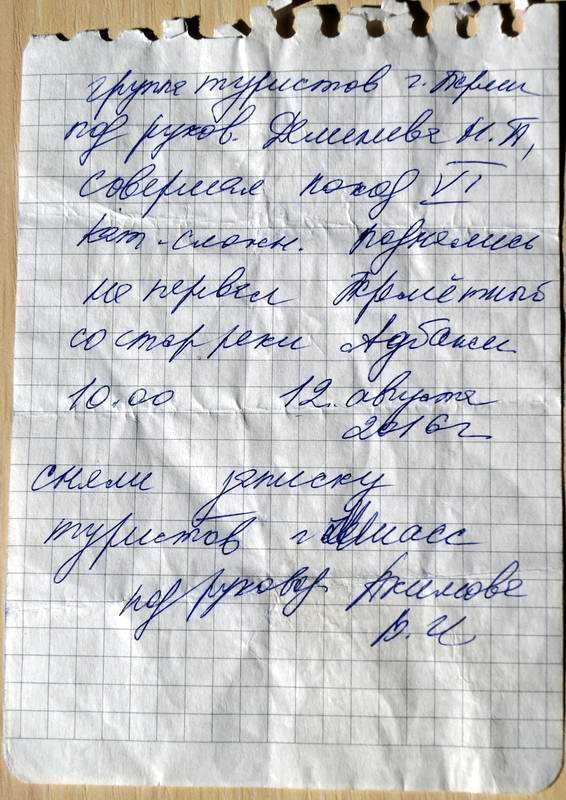 группа туристов г. Перми
под руков. Деменева Н.П,
совершая поход VI
кат-сложн. поднялись
на перевал Трёхлётный
со стор реки Адбажи
10.00 12. августа
2016г
сняли записку
туристов г Миасс
под руковод. Акимова
В. И